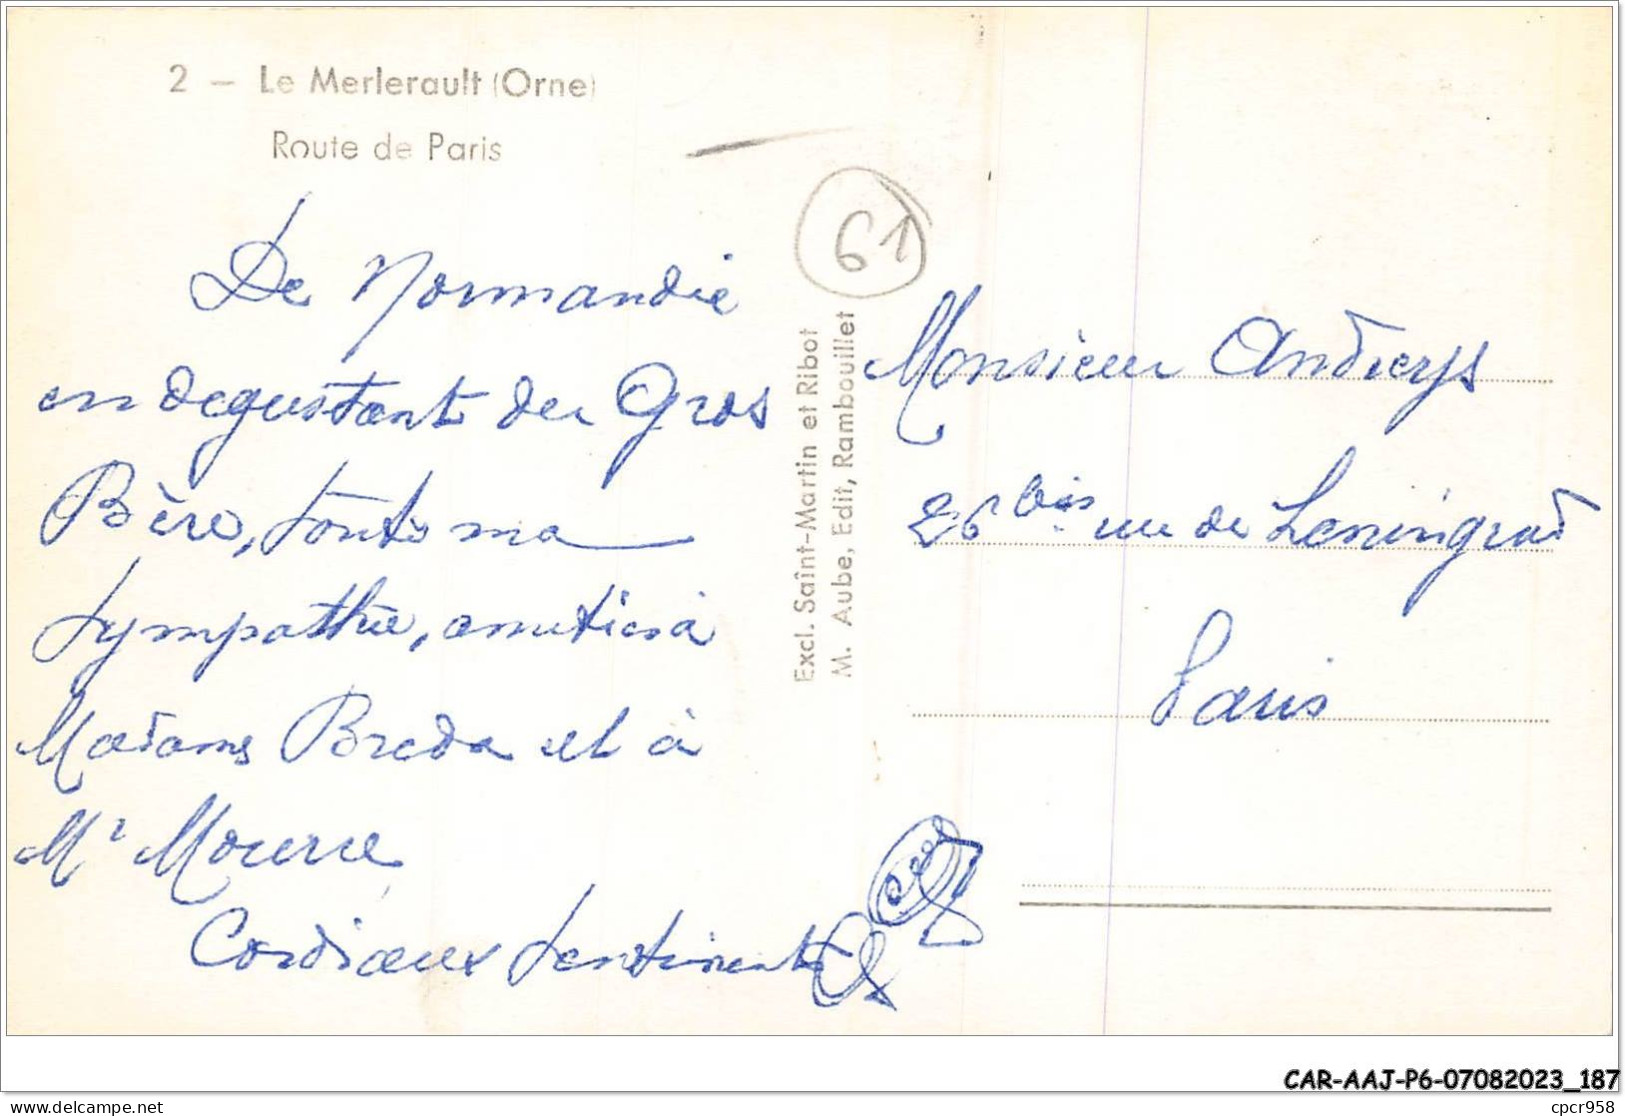 2 — Le Merlerault (Orne)
Route de Paris
61
De Normandie
en degustant du Gros
Bère, toute ma
sympathie, amitiés à
Madame Breda et à
Mr Mourre
Cordiaux sentiments
Excl. Saint-Martin et Ribot
M. Aube, Edit, Rambouillet
Monsieur Andreys
26 bis rue de Leningrad
Paris
CAR-AAJ-P6-07082023_187
delcampe.net
cpcr958